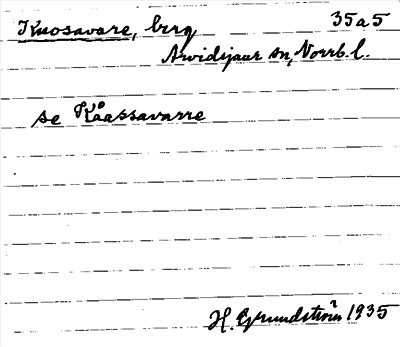 Kuosavare, berg 35a5
Arvidsjaur sn, Norrb. l.
se Kåassavarre
H. Grundström 1935